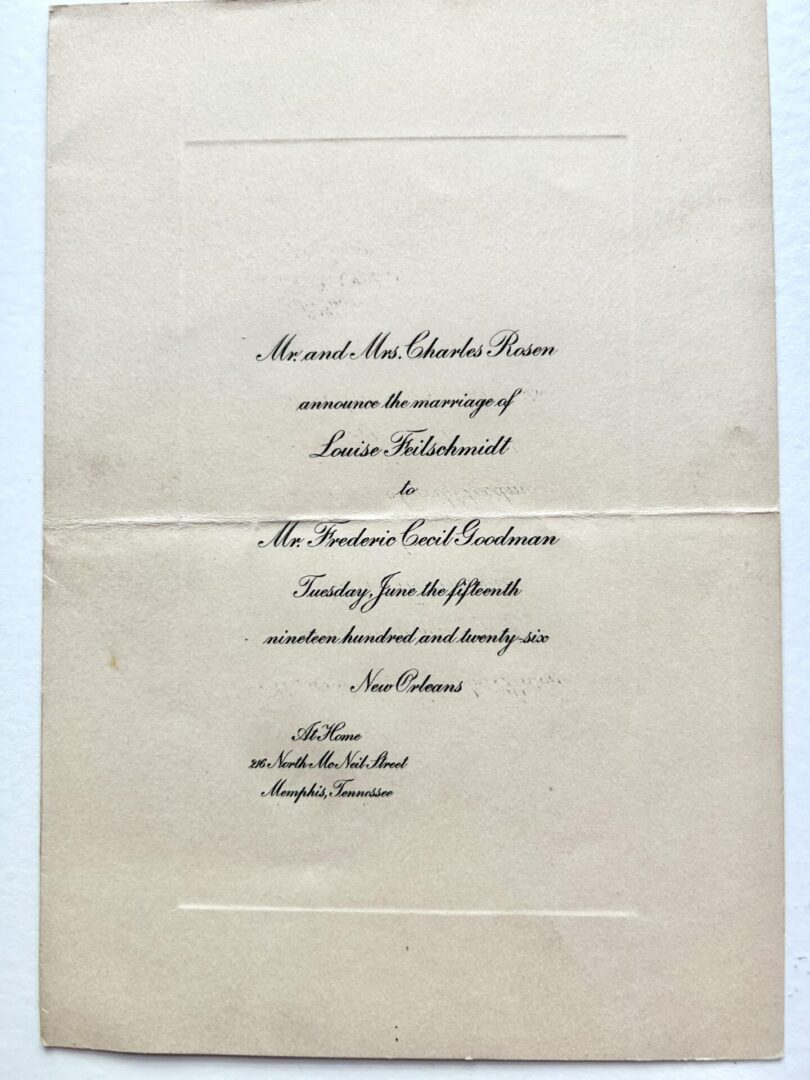 Mr. and Mrs. Charles Rosen
announce the marriage of
Louise Feilschmidt
to
Mr. Frederic Cecil Goodman
Tuesday, June the fifteenth
nineteen hundred and twenty-six
New Orleans
At Home
216 North McNeil Street
Memphis, Tennessee